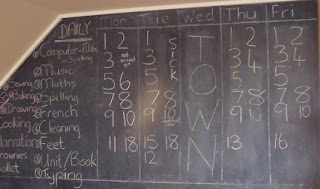 DAILY Mon Tue Wed Thu Fri
Computer 1 2 1 S T 1 2 1 2
Spelling
Music 3 4 3 I O 3 4 3 4
Maths 5 6 5 C K W 5 5
Baking Spelling 7 8 7 8 N 7 8 7 8
Drawing French 9 10 9 10 9 10 9 10
Cooking Cleaning
Narration Feet 11 18 15 18 13 16
Brownies Unit/Book 12
Ballet Typing